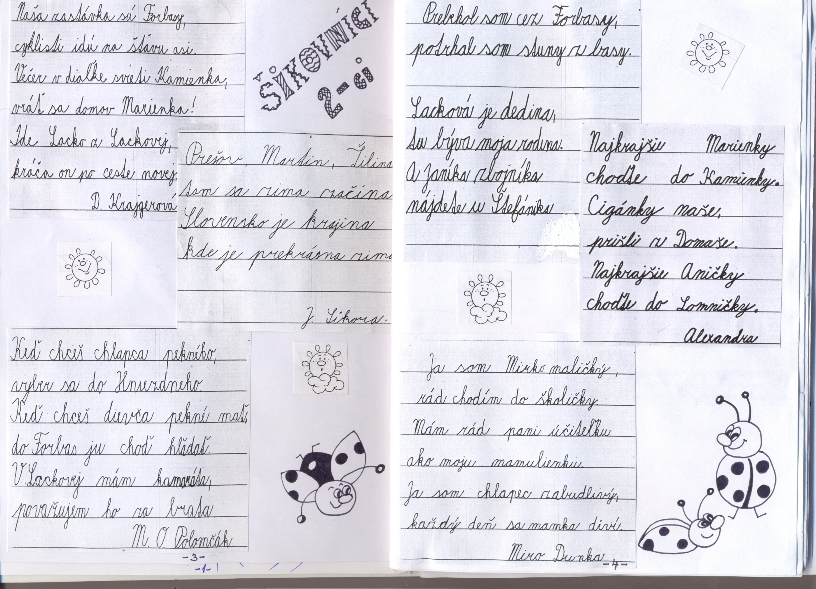 Naša zastávka sú Forbasy,
cyklisti idú na šťavu asi.
Večer v diaľke svieti Kamienka,
vráť sa domov Marienka!
Ide Lacko z Lackovej,
kráča on po ceste novej.
D. Krajgerová
ŠIKOVNÍČI
2-či
Prešov Martin, Žilina
tam sa zima začína
Slovensko je krajina
kde je prekrásna zima
J. Sikora.
Keď chceš chlapca pekného,
vyber sa do Hniezdneho
Keď chceš dievča pekné mať,
do Forbas ju choď hľadať.
V Lackovej mám kamaráta,
považujem ho za brata
M. O Polomčák
-3-
-1-
Prebehol som cez Forbasy,
potrhal som struny z basy.
Lacková je dedina,
tu býva moja rodina.
A Janíka zbojníka
nájdete u Štefánika
Najkrajšie Marienky
choďte do Kamienky.
Cigánky naše,
prišli z Domaše.
Najkrajšie Aničky
choďte do Lomničky.
Alexandra
Ja som Mirko maličký,
rád chodím do školičky
Mám rád pani učiteľku
ako moju mamulienku.
Ja som chlapec zabudlivý,
každý deň sa mamka diví.
Miro Drenka
-4-